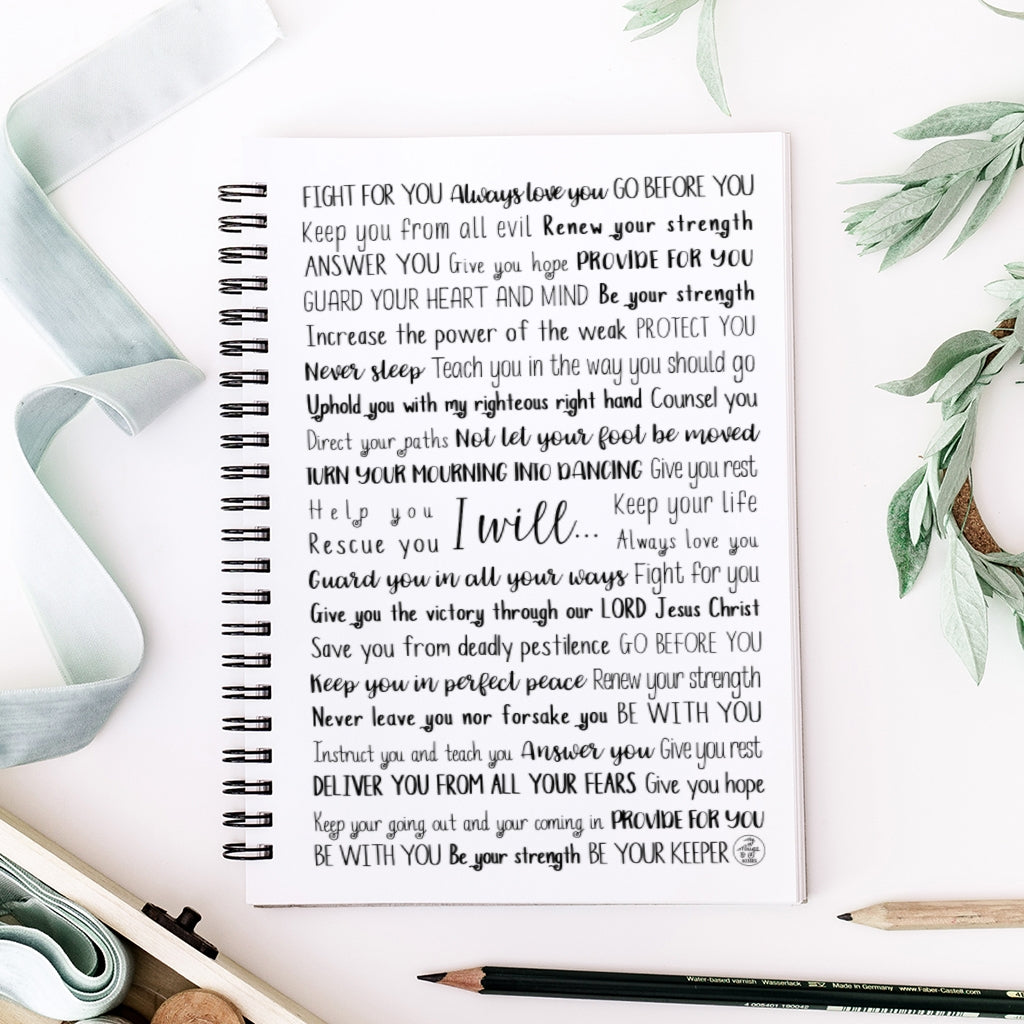 FIGHT FOR YOU Always love you GO BEFORE YOU
Keep you from all evil Renew your strength
ANSWER YOU Give you hope PROVIDE FOR YOU
GUARD YOUR HEART AND MIND Be your strength
Increase the power of the weak PROTECT YOU
Never sleep Teach you in the way you should go
Uphold you with my righteous right hand Counsel you
Direct your paths Not let your foot be moved
TURN YOUR MOURNING INTO DANCING Give you rest
Help you I will... Keep your life
Rescue you Always love you
Guard you in all your ways Fight for you
Give you the victory through our LORD Jesus Christ
Save you from deadly pestilence GO BEFORE YOU
Keep you in perfect peace Renew your strength
Never leave you nor forsake you BE WITH YOU
Instruct you and teach you Answer you Give you rest
DELIVER YOU FROM ALL YOUR FEARS Give you hope
Keep your going out and your coming in PROVIDE FOR YOU
BE WITH YOU Be your strength BE YOUR KEEPER
Water-based varnish Wasserlack Made in Germany www.Faber-Castell.com
4 005401 190042